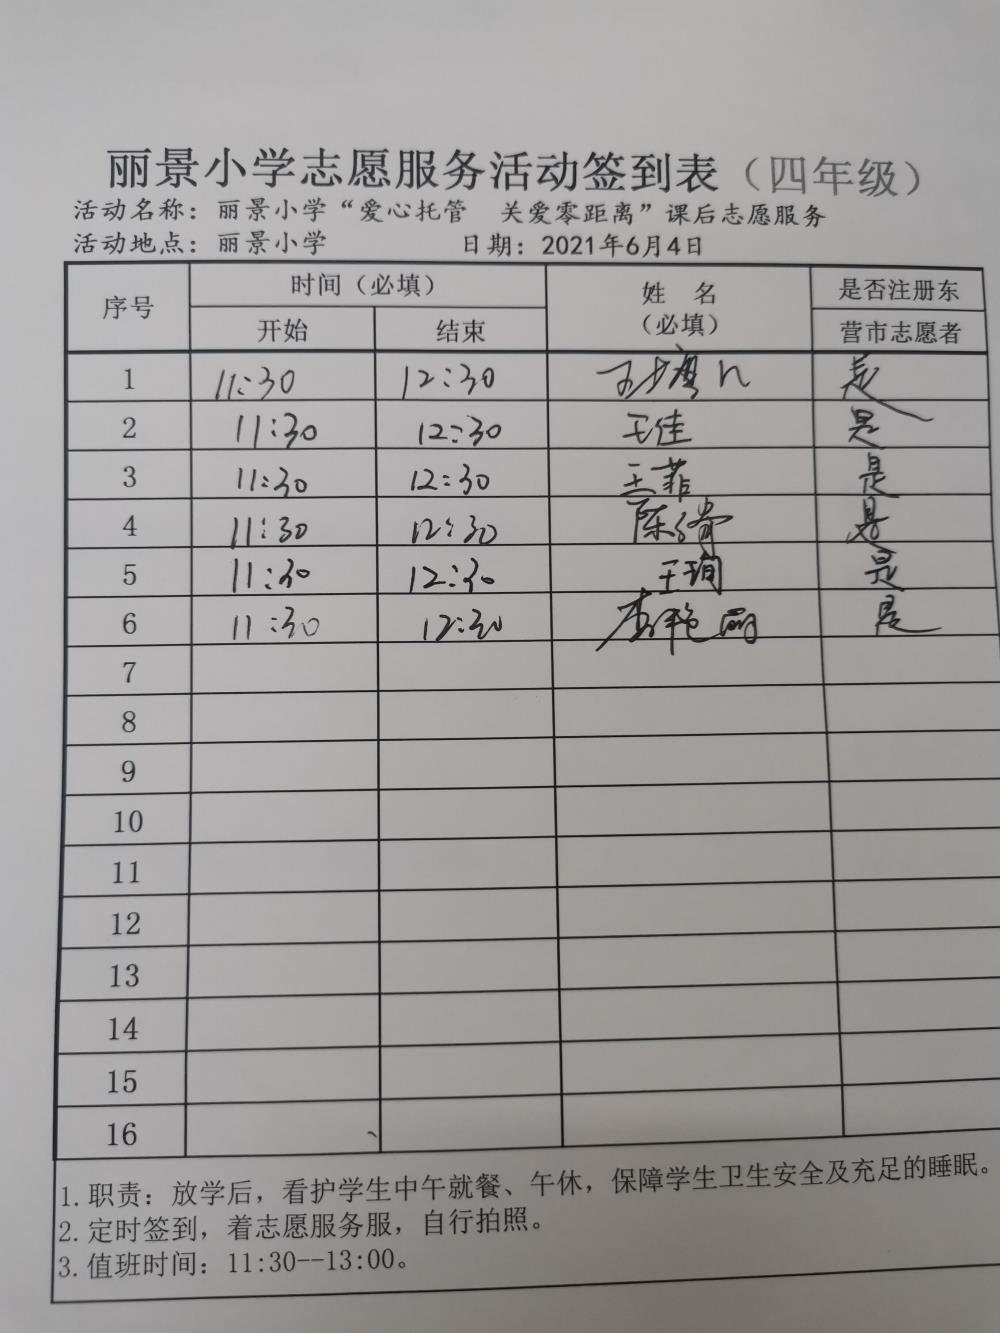 丽景小学志愿服务活动签到表（四年级）
活动名称：丽景小学“爱心托管 关爱零距离”课后志愿服务
活动地点：丽景小学 日期：2021年6月4日
序号 时间（必填） 姓 名 是否注册东
开始 结束 （必填） 营市志愿者
1 11:30 12:30 是
2 11:30 12:30 王佳 是
3 11:30 12:30 王菲 是
4 11:30 12:30 陈 是
5 11:30 12:30 王珣 是
6 11:30 12:30 李艳丽 是
7
8
9
10
11
12
13
14
15
16
1.职责：放学后，看护学生中午就餐、午休，保障学生卫生安全及充足的睡眠。
2.定时签到，着志愿服务服，自行拍照。
3.值班时间：11:30--13:00。